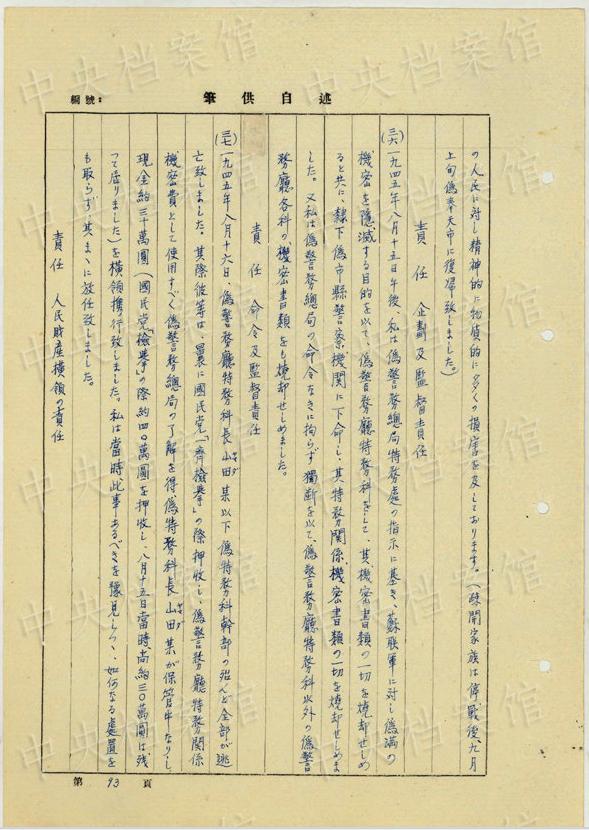 中央档案馆
編號：
筆供自述
の人民に対し精神的に物質的に多くの損害を及しております。（疎開家族は停戦後、九月
上旬偽奉天市に復帰致しました。）
責任　企劃及監督責任
(三六)一九四五年八月十五日午後、私は偽警務總局特務處の指示に基き、蘇聯軍に対し偽満の
機密を隠滅する目的を以て、偽警務廳特務科をして、其機密書類の一切を焼却せしめ
ると共に、隷下偽市縣警察機関に下命し、其特務関係機密書類の一切を焼却せしめま
した。又私は偽警務總局の命令なきに拘らず獨断を以て、偽警務廳特務科以外の偽警
務廳各科の、機密書類をも焼却せしめました。
責任　命令及監督責任
(三七)一九四五年八月十六日、偽警務廳特務科長山田某以下偽特務科幹部の殆んど全部が逃
亡致しました。其際彼等は、曩に國民党「齊檢挙」の際押収し、偽警務廳特務関係
機密費として使用すべく偽警務總局の了解を得、偽特務科長山田某が保管中なりし
現金約三十萬圓（國民党檢挙」の際約四〇萬圓を押收し、八月十五日當時尚約三〇萬圓は残
って居りました）を横領携行致しました。私は當時此事あるべきを豫見しつゝ、如何なる處置を
も取らず、其まゝに放任致しました。
責任　人民財産横領の責任
第 93 頁